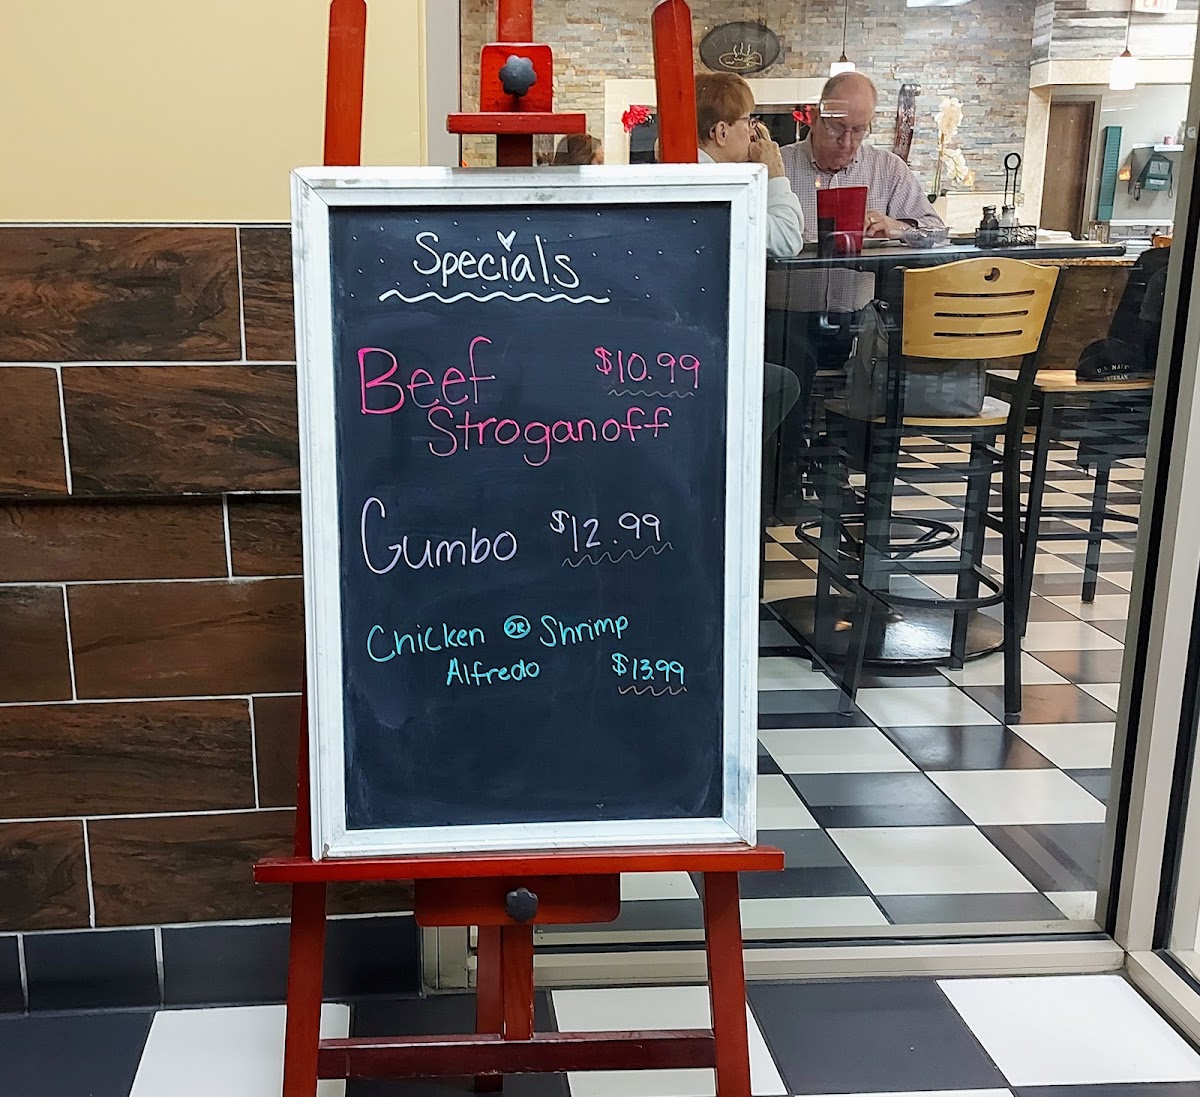 Specials
Beef $10.99
Stroganoff
Gumbo $12.99
Chicken OR Shrimp
Alfredo $13.99
U.S. NAVY
VETERAN